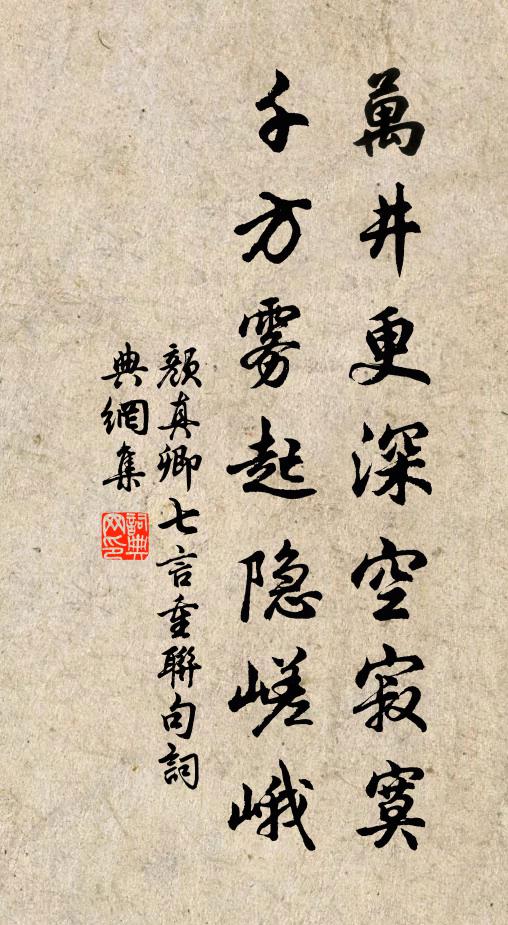 萬井更深空寂寞
千方雾起隐嵯峨
顏真卿七言重聯句詞
典網集
詞典网印